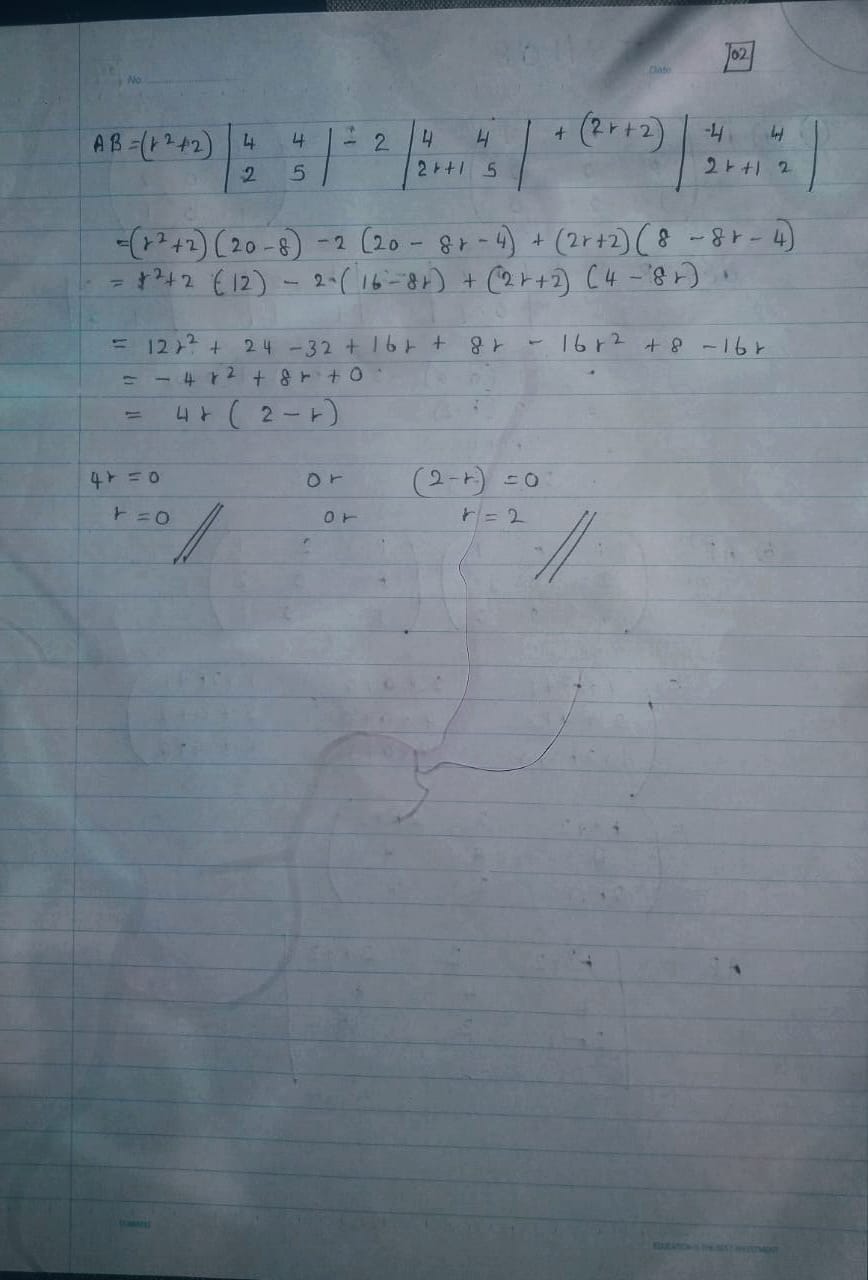 02
No
Date
AB = (r²+2) | 4 4 | - 2 | 4 4 | + (2r+2) | 4 4 |
2 5 2r+1 5 2r+1 2
=(r²+2)(20-8) -2 (20 - 8r - 4) + (2r+2)(8 - 8r - 4)
= r²+2 (12) - 2 (16-8r) + (2r+2) (4-8r)
= 12r² + 24 -32 + 16r + 8r - 16r² + 8 -16r
= - 4r² + 8r + 0
= 4r ( 2 - r)
4r = 0 or (2-r) = 0
r = 0 or r = 2
EDUCATION IS THE BEST INVESTMENT